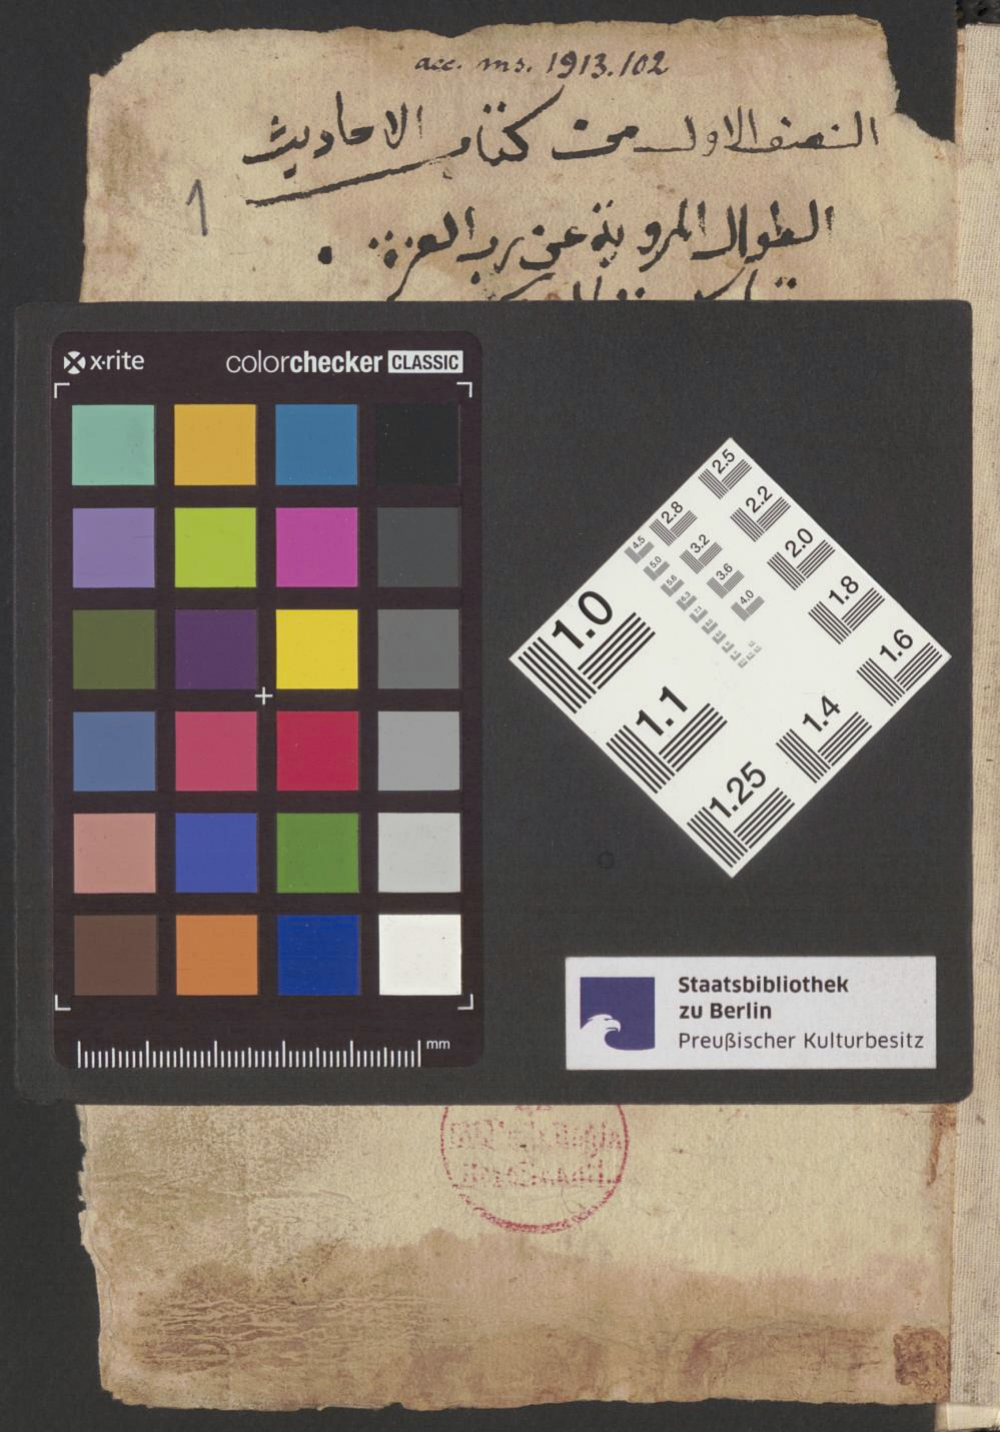 acc. ms. 1913.102
النصف الاول من كتاب الاحاديث
1
الطوال المروية عن رب العزة
x·rite colorchecker CLASSIC
2.5
2.2
2.8
2.0
3.2
4.5
5.0
3.6
1.8
5.6
4.0
6.3
1.0
1.6
1.1
1.4
1.25
Staatsbibliothek
zu Berlin
Preußischer Kulturbesitz
mm